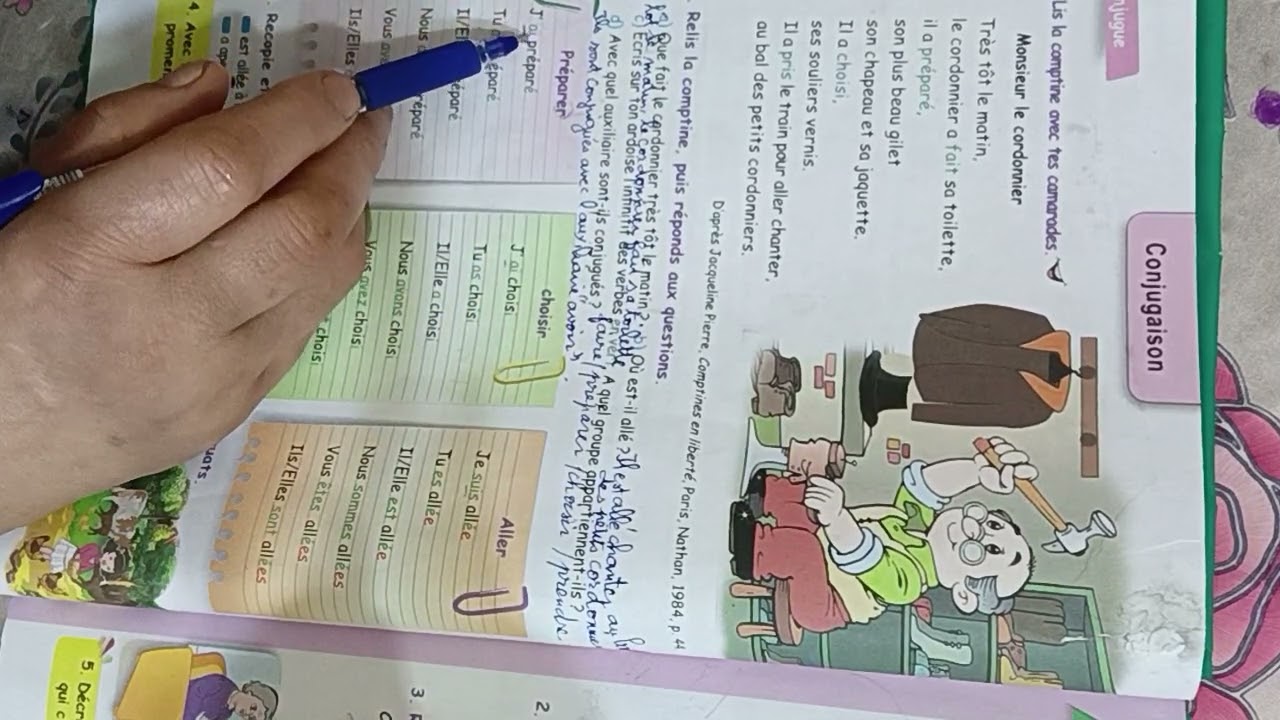 Conjugaison
njugue
Lis la comptine avec tes camarades.
Monsieur le cordonnier
Très tôt le matin,
le cordonnier a fait sa toilette,
il a préparé,
son plus beau gilet
son chapeau et sa jaquette.
Il a choisi,
ses souliers vernis.
Il a pris le train pour aller chanter,
au bal des petits cordonniers.
D'après Jacqueline Pierre, Comptines en liberté, Paris, Nathan, 1984, p 44
Relis la comptine, puis réponds aux questions.
a) Que fait le cordonnier très tôt le matin? b) Où est-il allé? Il est allé chanter au
tôt le matin, le cordonnier fait sa toilette
des petits cordonniers
c) Ecris sur ton ardoise l'infinitif des verbes en vert. A quel groupe appartiennent-ils?
d) Avec quel auxiliaire sont-ils conjugués? faire/préparer/choisir/prendre
Ils sont conjugués avec l'auxiliaire "avoir".
Préparer
J'ai préparé
Tu
éparé
Il/El
éparé
Nous
réparé
Vous av
Ils/Elles
choisir
J'ai choisi
Tu as choisi
Il/Elle a choisi
Nous avons choisi
Vous avez choisi
choisi
Aller
Je suis allée
Tu es allée
Il/Elle est allée
Nous sommes allées
Vous êtes allées
Ils/Elles sont allées
Recopie et
est allée à
a
4. Avec
promen
uats
2.
3.
5. Décr
qui c